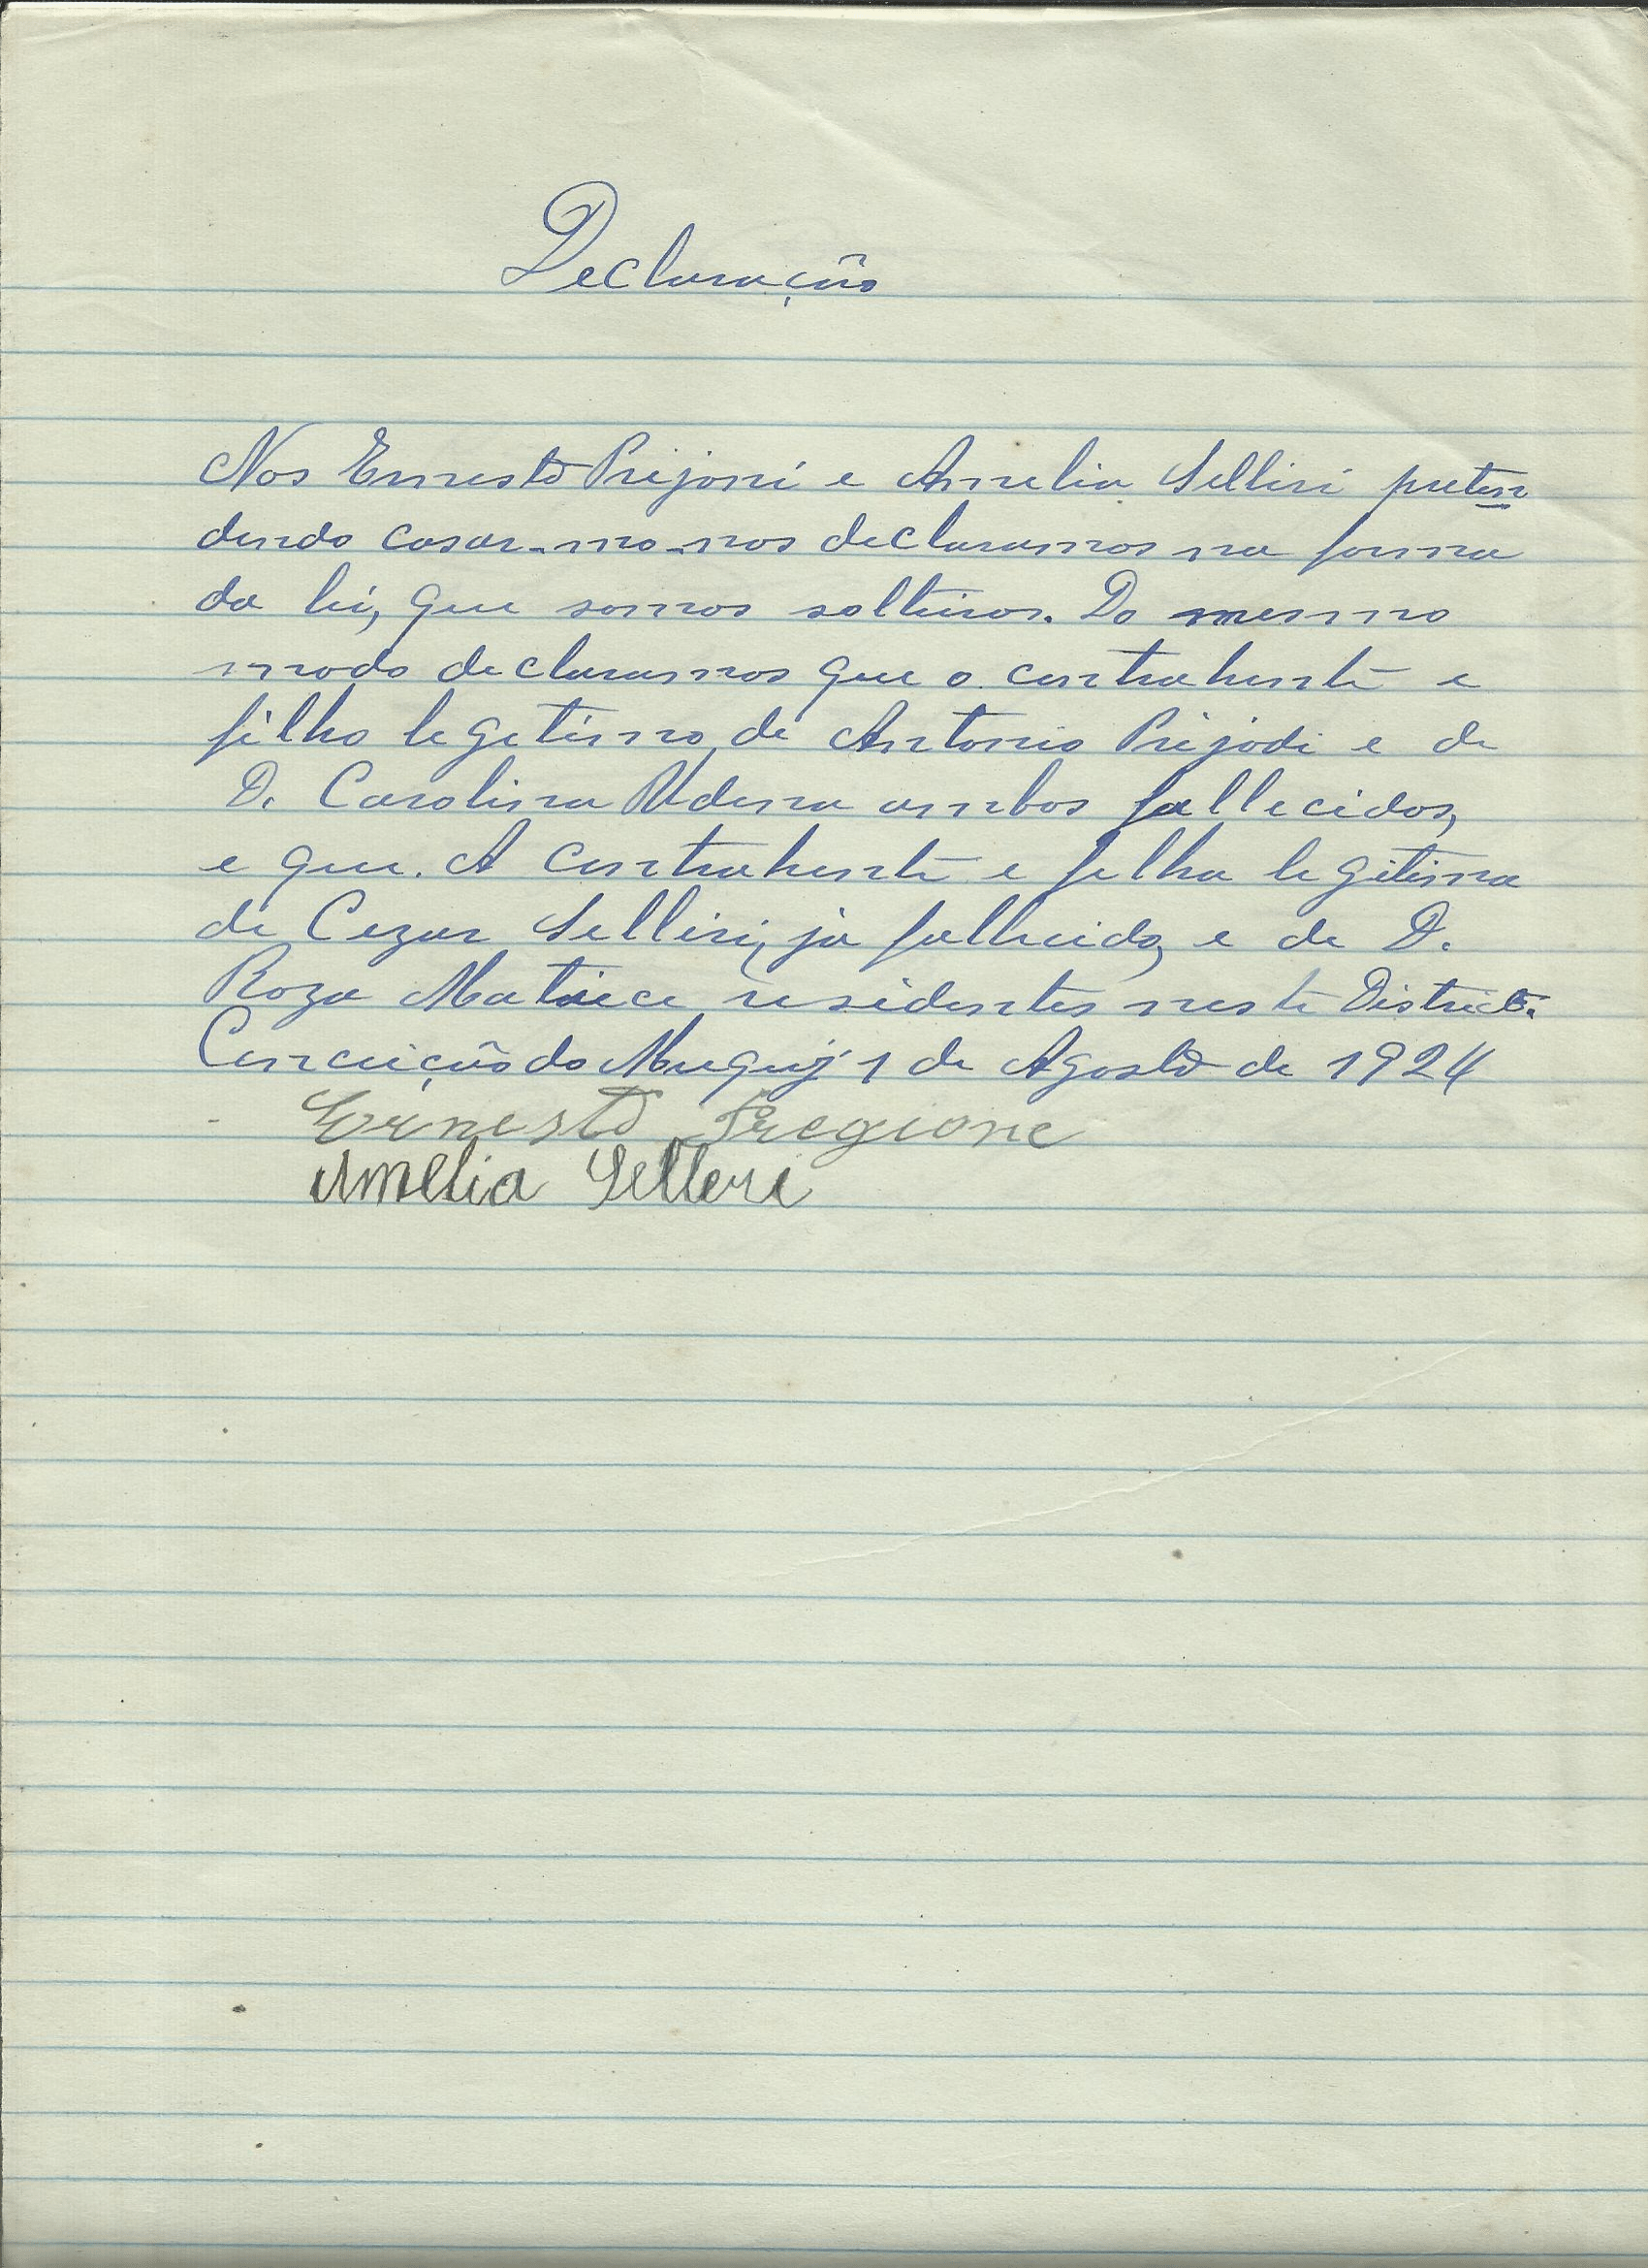 Declaração
Nos Ernesto Prijoni e Amelia Selliri preten
dendo casar-mo-nos declaramos na forma
da lei, que somos solteiros. Do mesmo
modo declaramos que o contrahente e
filho legetimo de Antonio Prijodi e de
D. Carolina Udena ambos fallecidos,
e que. A contrahente e filha legitima
de Cezar Selliri, ja fallecido, e de D.
Roza Matuce residentes neste Districto.
Conceição do Muquy 1 de Agosto de 1924
Ernesto Pregione
Amelia Selleri